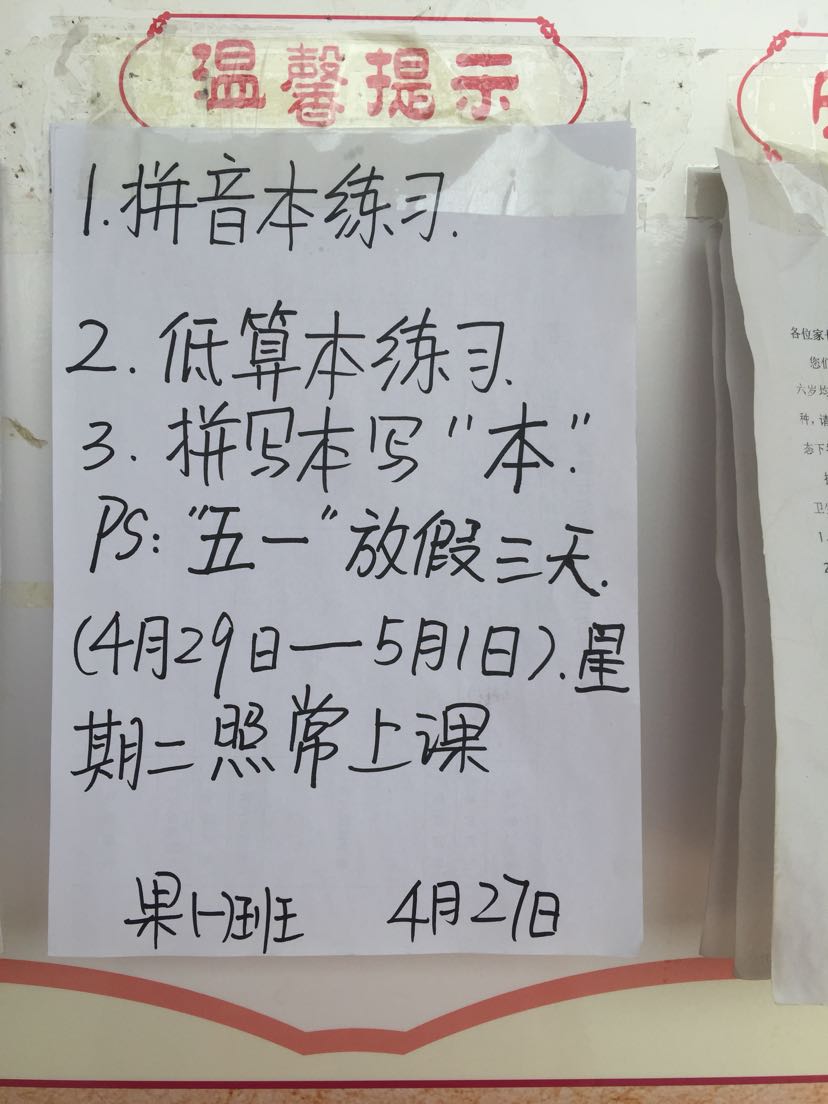 温馨提示
1.拼音本练习.
2.低算本练习.
3.拼写本写"本".
PS:"五一"放假三天.
(4月29日—5月1日).星
期二照常上课
果一班 4月27日
各位家
您们
六岁均
种,请
态下
卫
1.
2